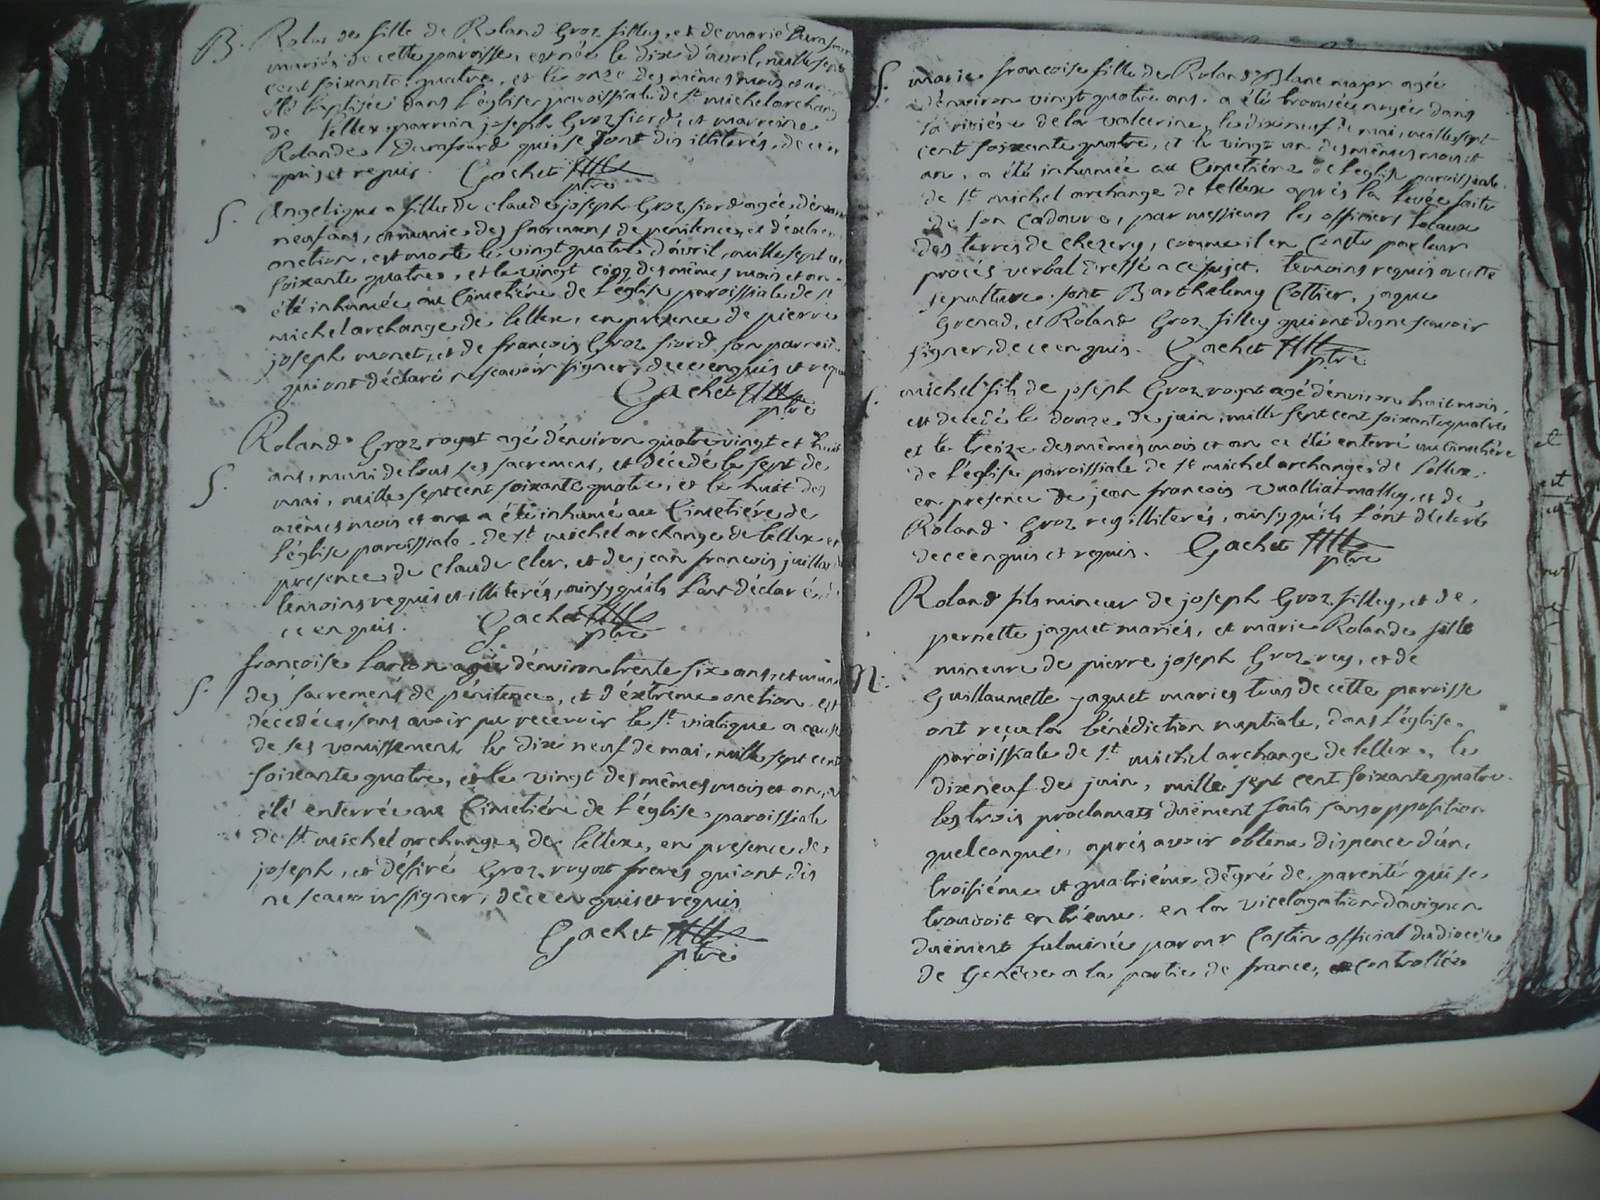 B. Rolande fille de Roland Groz filley, et de marie Durafour
mariés de cette paroisse, est née le dix d'avril, mille sept
cent soixante quatre, et le onze des mêmes mois et an a
été baptisée dans l'église paroissiale de St michel archange
de Lellex parrain joseph Groz fiord, et marreine
Rolande Durafourd qui se sont dis illiterés, de ce en
quis et requis. Gachet ptre
S. Angelique fille de claude joseph Groz fiord agée d'environ
neuf ans, et munie des sacremens de penitence, et d'extrem
onction, est morte le vingt quatre d'avril, mille sept cen
soixante quatre, et le vingt cinq des mêmes mois et an a
été inhumée au Cimetiére de l'église paroissiale de St
michel archange de Lellex, en presence de pierre
joseph monet, et de françois Groz fiord son parrein
qui ont déclaré ne scavoir signer, de ce enquis et requis
Gachet ptre
Roland Groz royat agé d'environ quatre vingt et huit
S. ans, muni de tous les sacrement, est décedé le sept de
mai, mille sept cent soixante quatre, et le huit des
mêmes mois et an a été inhumé au Cimetière de
l'église paroissiale de St michel archange de Lellex en
presence de Claude Cler, et de jean francois juillard
temoins requis et illiterés, ainsy qu'ils l'ont déclaré, de
ce enquis. Gachet ptre
françoise Larion agée d'environ trente six ans, et munie
S. des sacremens de pénitence, et d'extreme onction est
decedée, sans avoir pu recevoir le St viatique a cause
de ses vomissement le dix neuf de mai, mille sept cent
soixante quatre, et le vingt des mêmes mois et an, a
été enterrée au Cimetiére de l'église paroissiale
de St michel archange de Lellex, en presence de
joseph, et désiré Groz royat freres qui ont dis
ne scavoir signer, de ce enquis et requis
Gachet ptre
S. marie françoise fille de Roland Blanc major agée
d'environ vingt quatre ans. a été trouvée noyée dans
la riviére de la valcerine, le dix neuf de mai, mille sept
cent soixante quatre, et le vingt un des mêmes mois et
an, a été inhumée au Cimetiére de l'église paroissiale
de St michel archange de Lellex après la levée faite
de son Cadavre, par messieurs les officiers locaux
des terres de chezery, comme il en Conste par leur
procés verbal dressé a ce sujet. temoins requis a cette
sepulture sont Barthelemy Coltier, jaque
Grenad, et Roland Groz filley qui ont dis ne scavoir
signer, de ce enquis. Gachet ptre
S. michel fils de joseph Groz royat agé d'environ huit mois,
est decedé le douze de juin, mille sept cent soixante quatre
et le treize des mêmes mois et an a été enterré au cimetière
de l'église paroissiale de St michel archange de Lellex.
en presence de jean francois vualliat malley, et de
Roland Groz rey illiterés, ainsy qu'ils l'ont déclaré
de ce enquis et requis. Gachet ptre
Roland fils mineur de joseph Groz filley, et de
pernette jaquet mariés, et marie Rolande fille
N. mineure de pierre joseph Groz rey, et de
Guillaumette jaquet mariés tous de cette paroisse
ont reçu la bénédiction nuptiale, dans l'église
paroissiale de St michel archange de Lellex, le
dix neuf de juin, mille sept cent soixante quatre
les trois proclamats duëment faits sans opposition
quelconque, après avoir obtenu dispence d'un
troisiéme et quatriéme dégré de parenté qui se
trouvoit entr'eux. en la vicelegation d'avignon
duëment fulminée par mr Castin official du diocèse
de Genéve a la partie de france, controllée